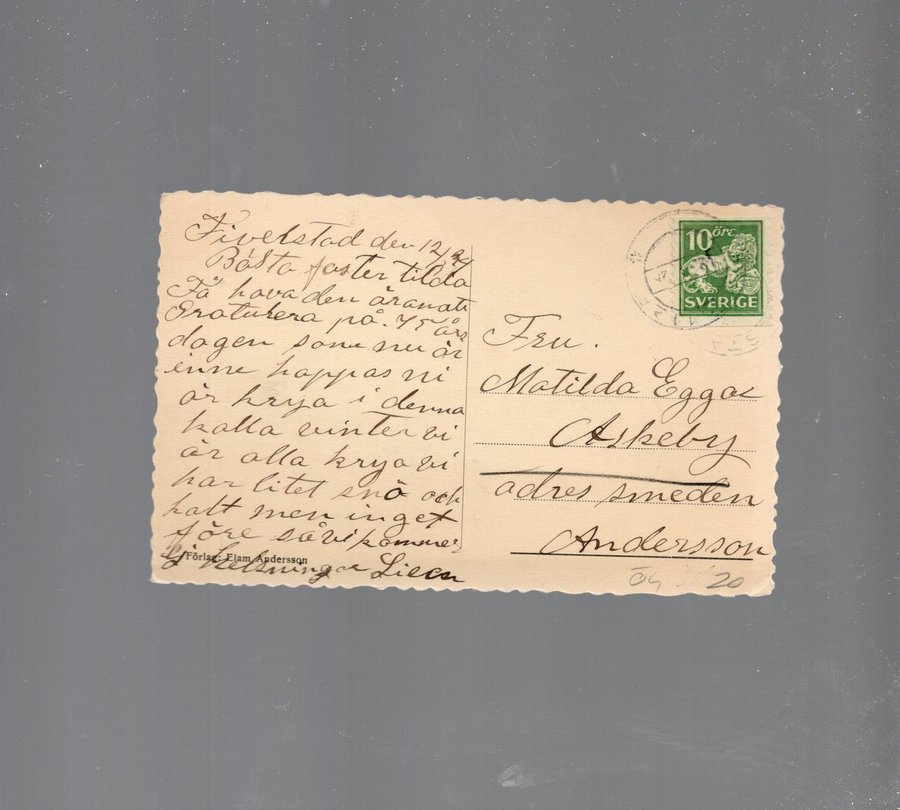 Fivelstad den 12/2
Bästa faster tilda
Få hava den äran att
Gratulera på. 75 års
dagen som nu är
inne hoppas ni
är krya i denna
kalla vinter vi
är alla krya vi
har litet snö och
kalt men inget
före så vi kommer
ej Helsningar Lisen
Förlag: Elam Andersson
10 öre
SVERIGE
Fru.
Matilda Eggar
Askeby
adres smeden
Andersson
20